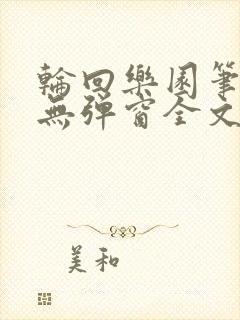 輪回樂園筆
無彈窗全文
美和